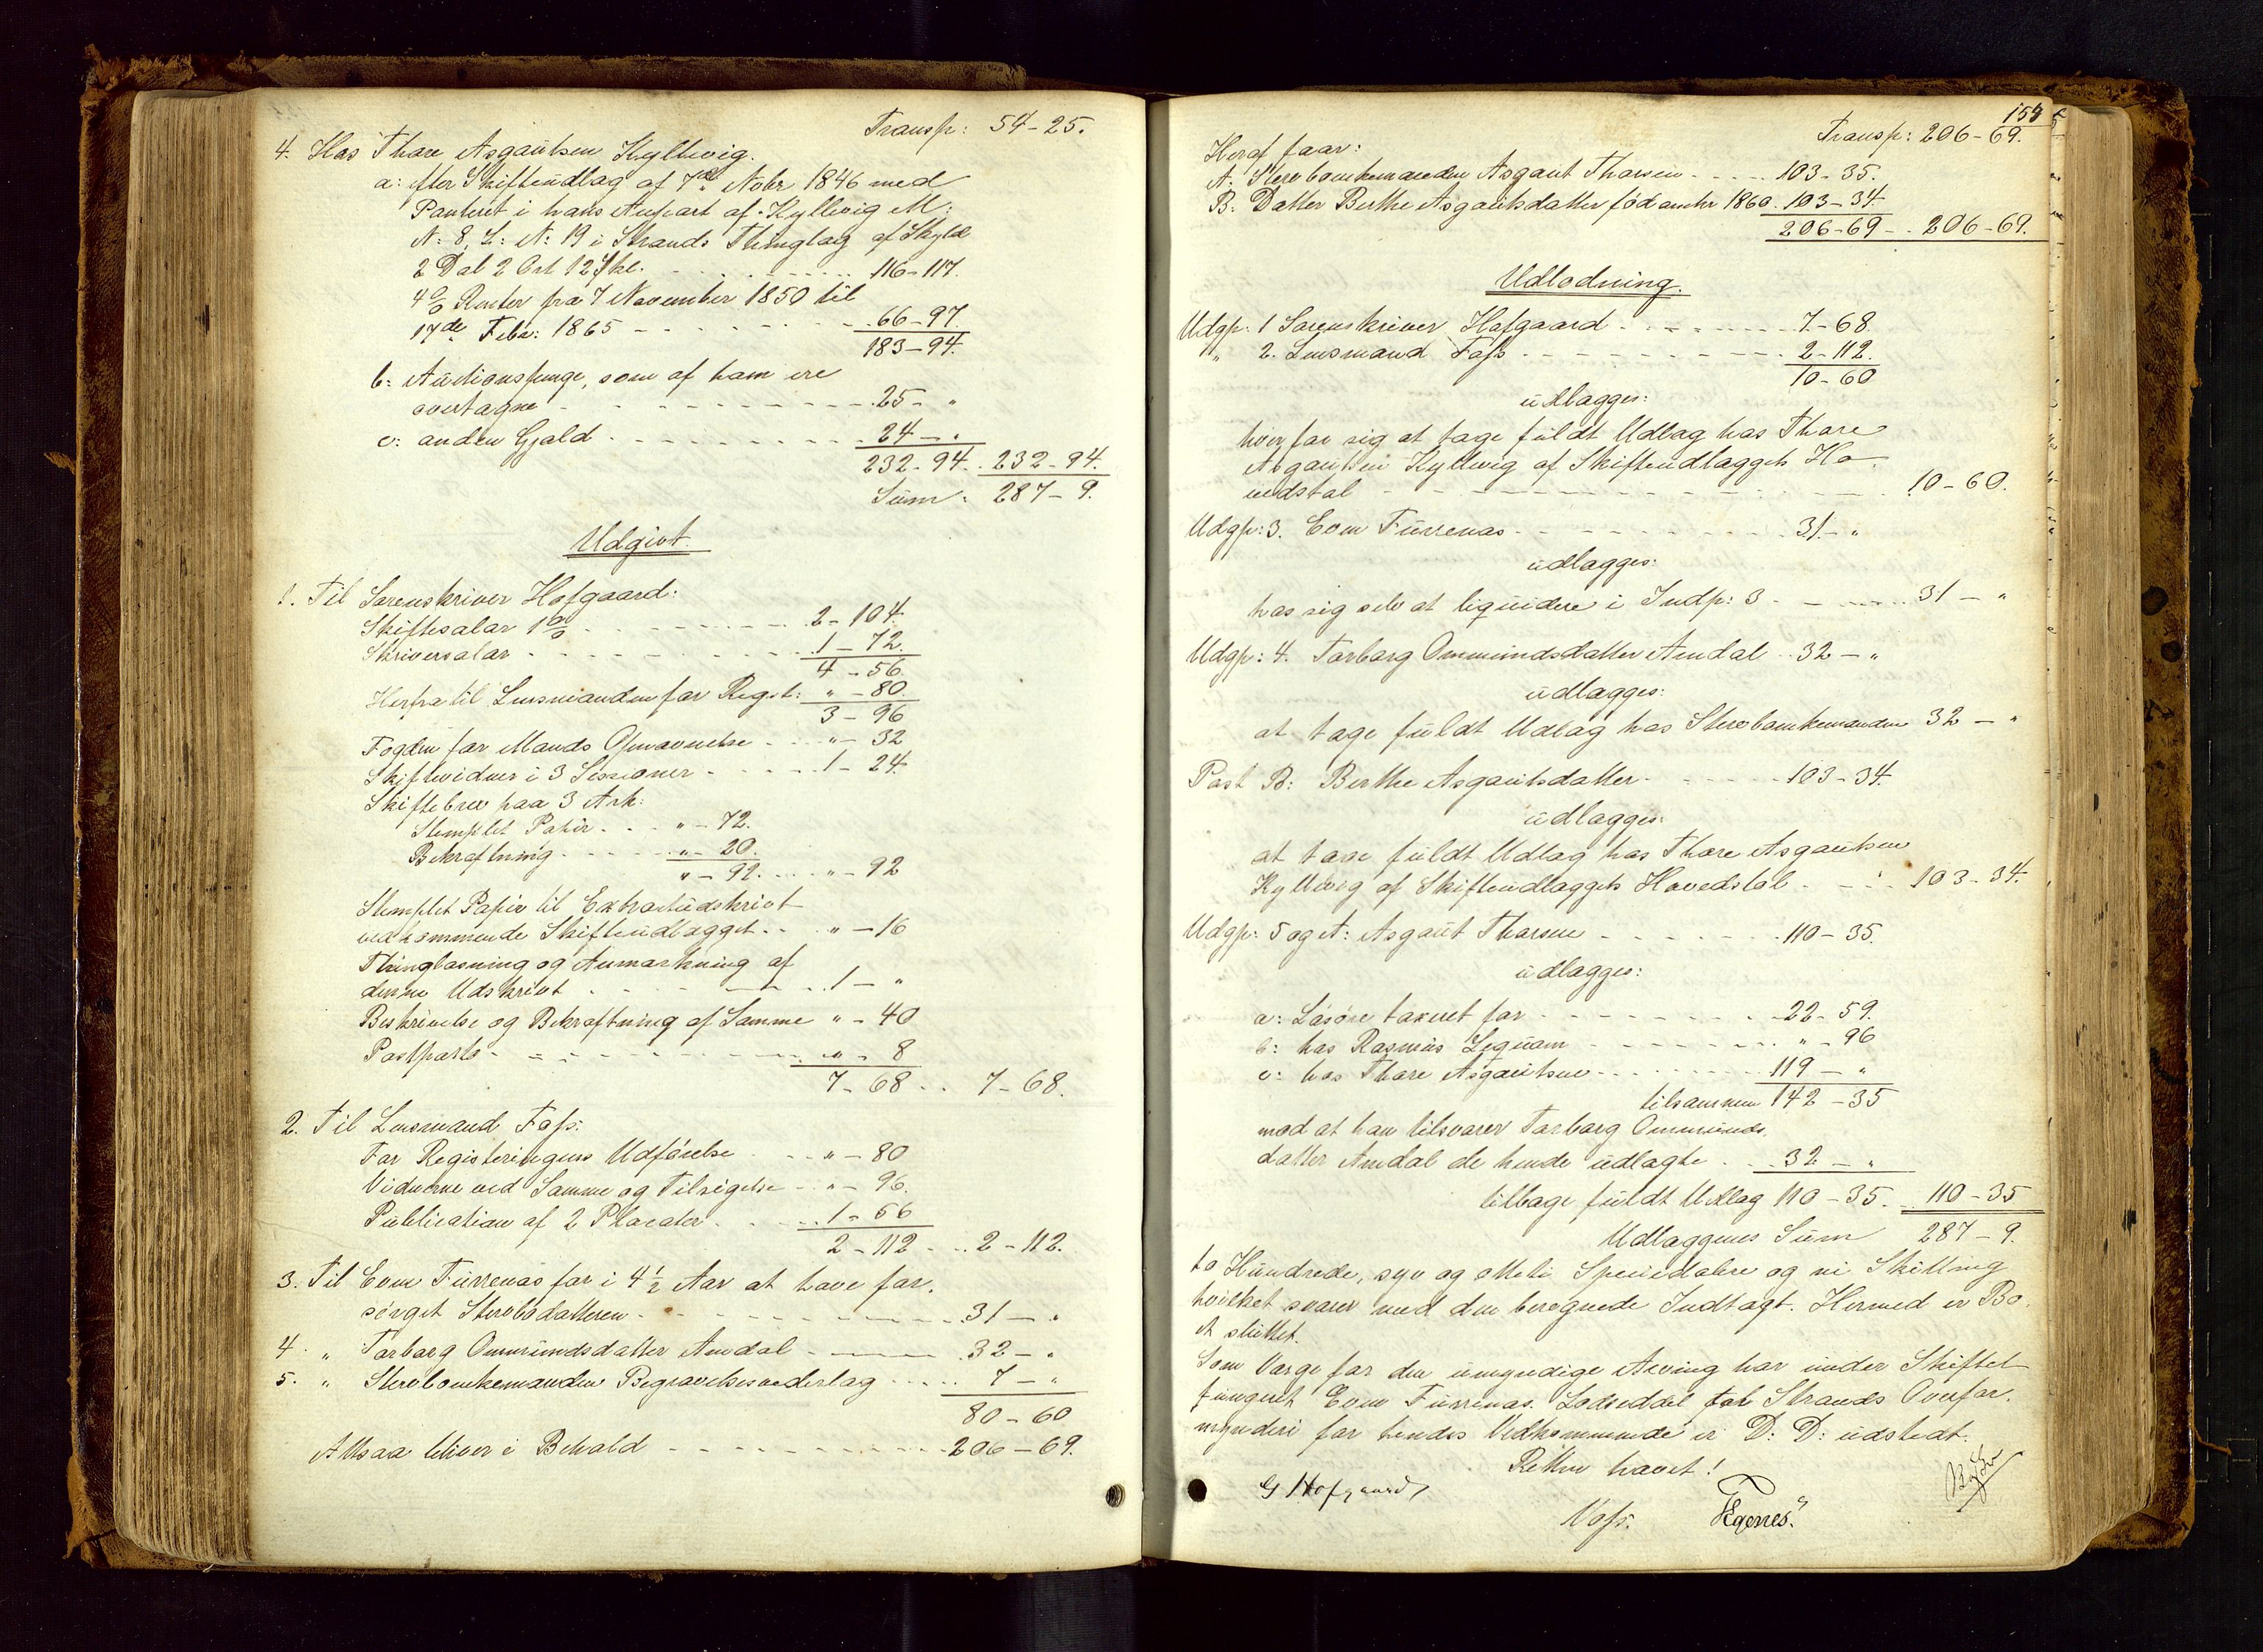 Transp: 54-25.
4. Hos Thore Asgautsen Kyllevig.
a: efter Skifteudlæg af 7de Novbr 1846 med
Panteret i hans Anpart af Kyllevig M:
N: 8, L: N: 19 i Strands Thinglag af Skyld
2 Dal 2 Ort 12 Skl. 116-117.
4 % Renter fra 7 November 1850 til
17de Febr: 1865 - 66-97
183-94.
b: Auctionspenge, som af ham ere
overtagne - 25- "
c: anden Gjæld - 24- "
232-94. 232-94.
Sum. 287-9.
Udgivt.
1. Til Sorenskriver Hofgaard:
Skiftesalær 1 % - 2-104.
Skriversalær - 1-72.
4-56.
Herfra til Lensmanden for Regist: " -80.
3-96
Fogden for Mands Opnævnelse - " - 32
Skiftevidner i 3 Sessioner - 1-24.
Skiftebrev paa 3 Ark:
Stemplet Papir - " -72.
Bekræftning - " -20.
" -92. " -92
Stemplet Papir til Extractudskrivt
vedkommende Skifteudlægget - " -16
Thinglæsning og Anmærkning af
denne Udskrivt - 1- "
Beskrivelse og Bekræftning af Samme " -40
Postporto - " - 8
7-68 - 7-68.
2. Til Lensmand Foss:
For Registeringens Udførelse - " -80
Vidnerne ved Samme og Tilsigelse - " -96.
Publication af 2 Placater - 1-56
2-112 - 2-112.
3. Til Even Furrenæs for i 4½ Aar at have for-
sørget Sterbodatteren - 31- "
4. " Torborg Ommundsdatter Amdal - 32- "
5. " Sterboenkemanden Begravelsesvederlag - 7- "
80-60
Altsaa bliver i Behold - 206-69.
159
Transp: 206-69.
Heraf faar:
A: Sterboenkemanden Asgaut Thorsen - 103-35.
B: Datter Berthe Asgautsdatter född omtr 1860. 103-34.
206-69 - 206-69.
Udlodning.
Udgp: 1 Sorenskriver Hofgaard - 7-68.
" 2. Lensmand Foss - 2-112.
10-60
udlægges:
hver for sig at tage fuldt Udlæg hos Thore
Asgautsen Kyllevig af Skifteudlæggets Ho-
vedstol - 10-60.
Udgp: 3. Even Furrenæs - 31- "
udlægges:
hos sig selv at liqvidere i Indp: 3 - 31- "
Udgp: 4. Torborg Ommundsdatter Amdal 32- "
udlægges:
at tage fuldt Udlæg hos Sterboenkemanden 32- "
Post B: Berthe Asgautsdatter - 103-34.
udlægges:
at tage fuldt Udlæg hos Thore Asgautsen
Kyllevig af Skifteudlæggets Hovedstol - 103-34.
Udgp: 5 og A: Asgaut Thorsen - 110-35.
udlægges:
a: Løsøre taxeret for - 22-59.
b: hos Rasmus Leqvam - " -96
c: hos Thore Asgautsen - 119- "
tilsammen 142-35
mod at han tilsvarer Torborg Ommunds-
datter Amdal de hende udlagte - 32- "
tilbage fuldt Udlæg 110-35. 110-35
Udlæggenes Sum 287-9.
to Hundrede, syv og otteti Speciedalere og ni Skilling
hvilket svarer med den beregnede Indtægt. Hermed er Bo-
et sluttet.
Som Værge for den umyndige Arving har under Skiftet
fungeret Even Furrenæs. Lodseddel til Strands Overfor-
mynderi for hendes Vedkommende er D: D: udstedt.
Retten hævet!
G Hofgaard
Voss.